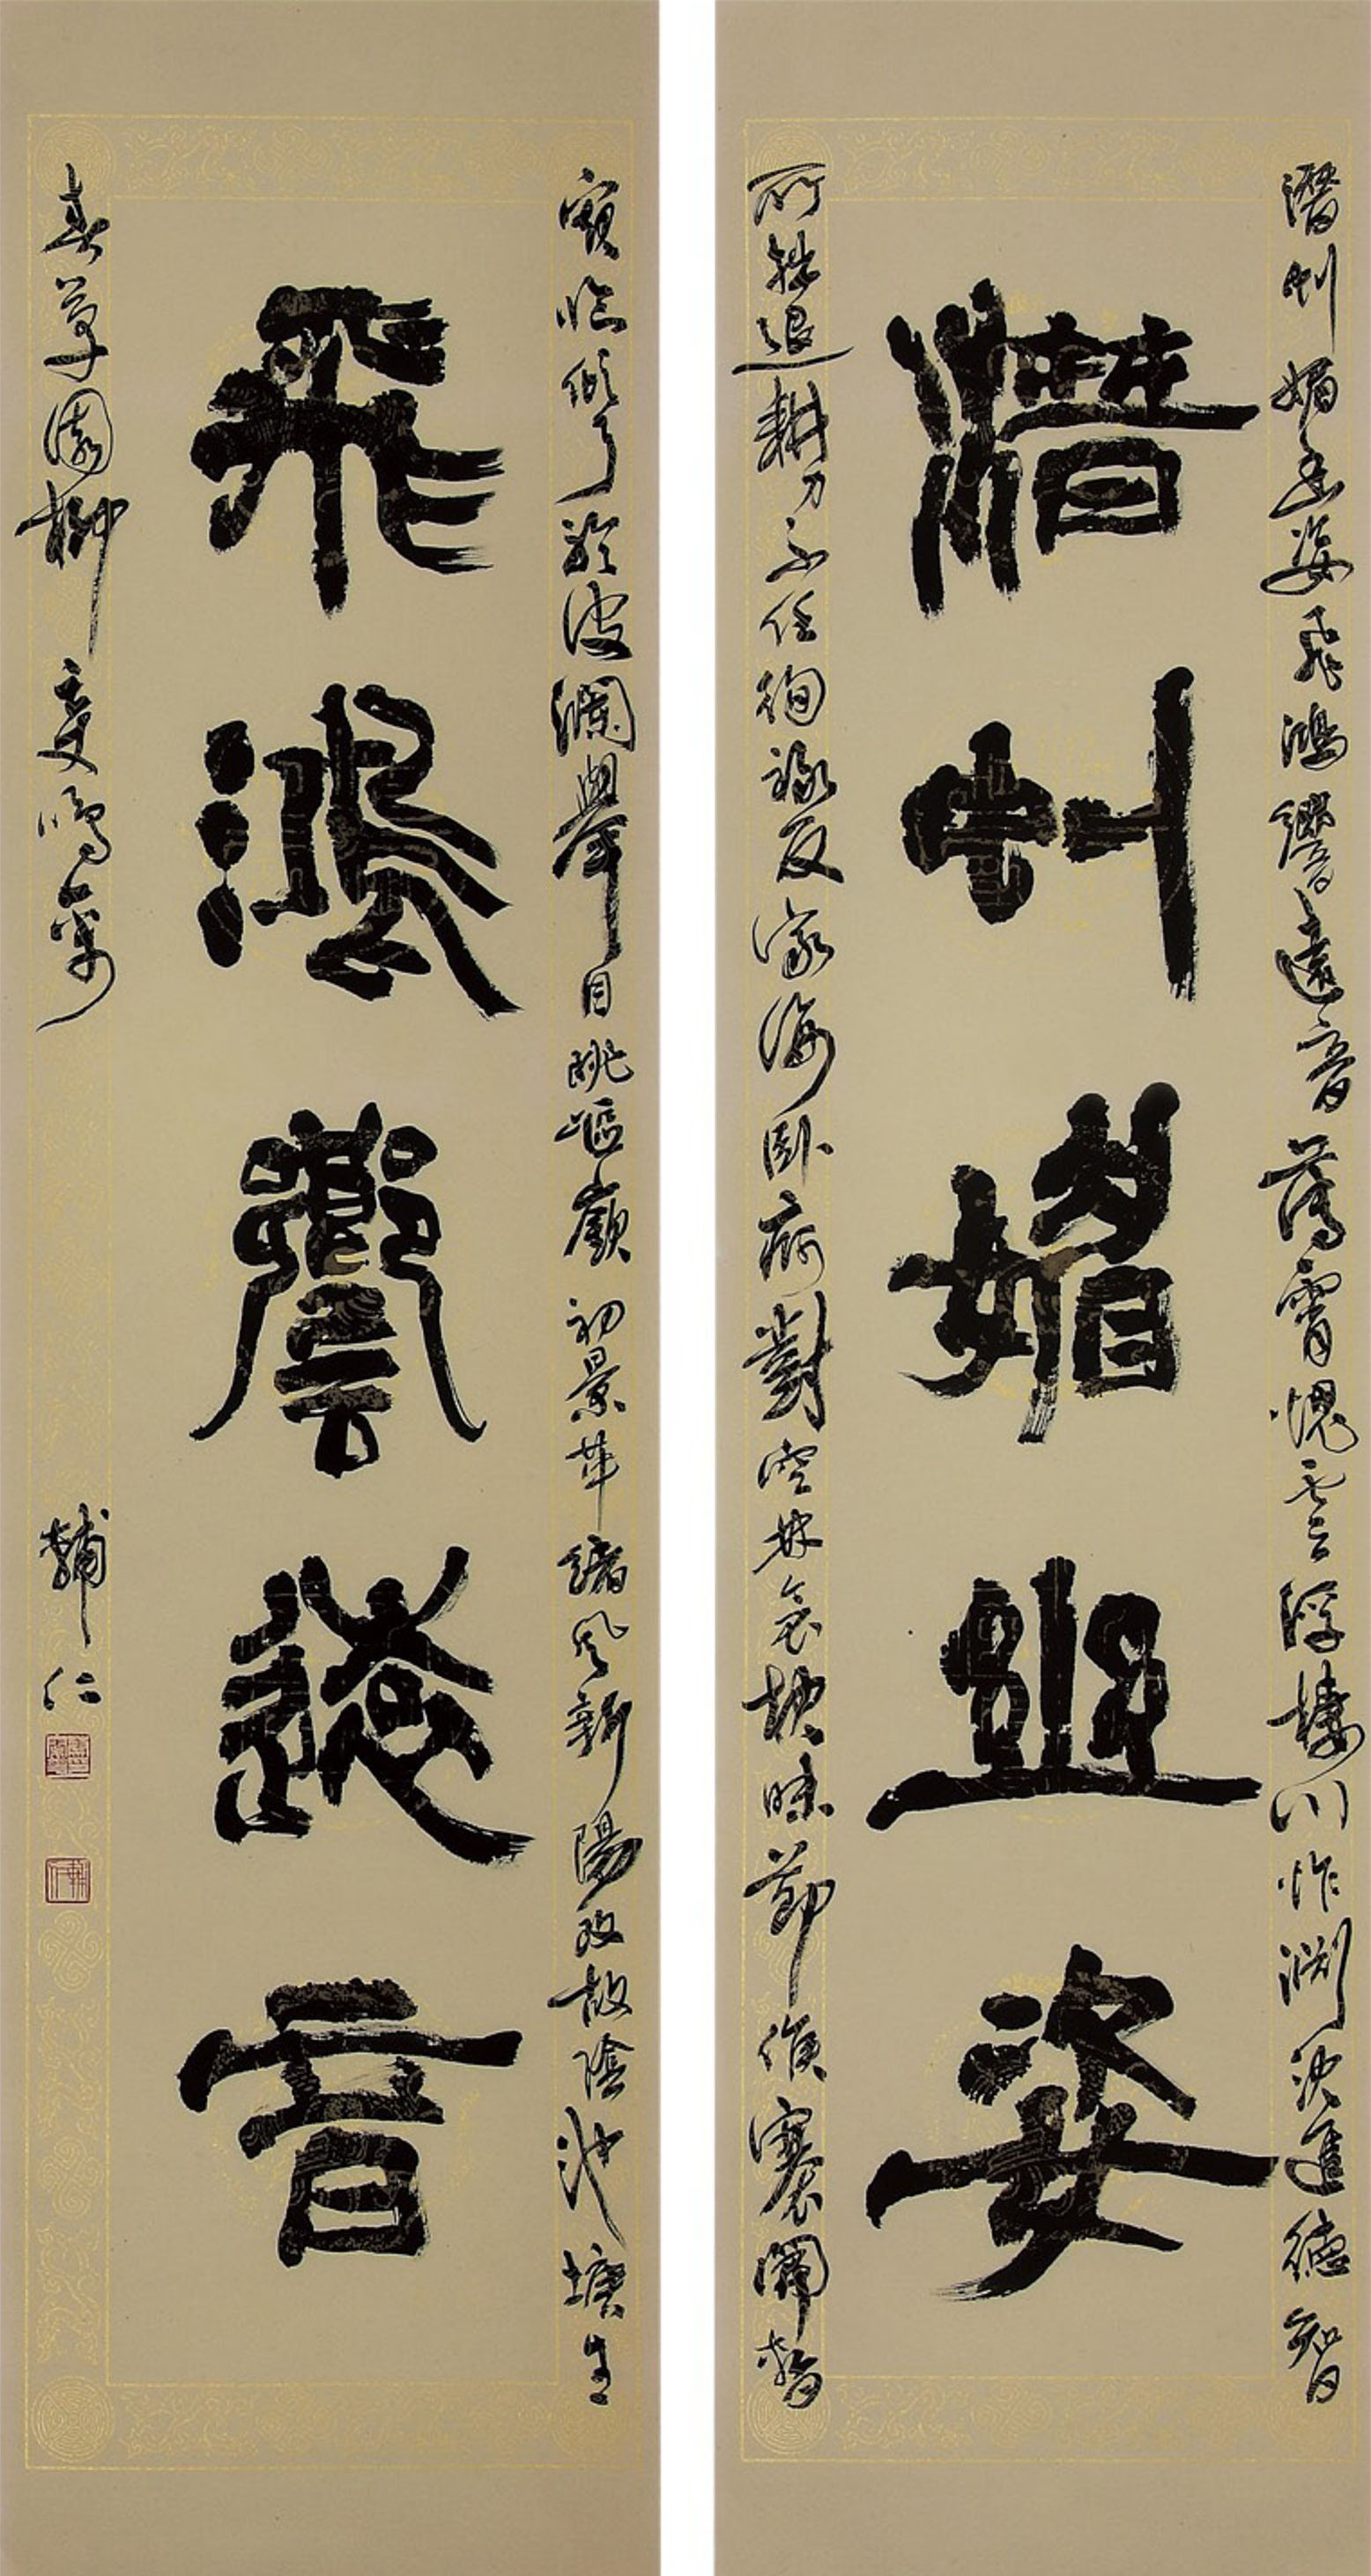 潛虯媚幽姿飛鴻響遠音薄霄愧雲浮棲川怍淵沉進德智
潛虯媚幽姿
所拙退耕力不任徇祿反窮海臥痾對空林衾枕昧節候褰開暫
窺臨傾耳聆波瀾舉目眺嶇嶔初景革緒風新陽改故陰池塘生
飛鴻響遠音
春草園柳變鳴禽 輔仁